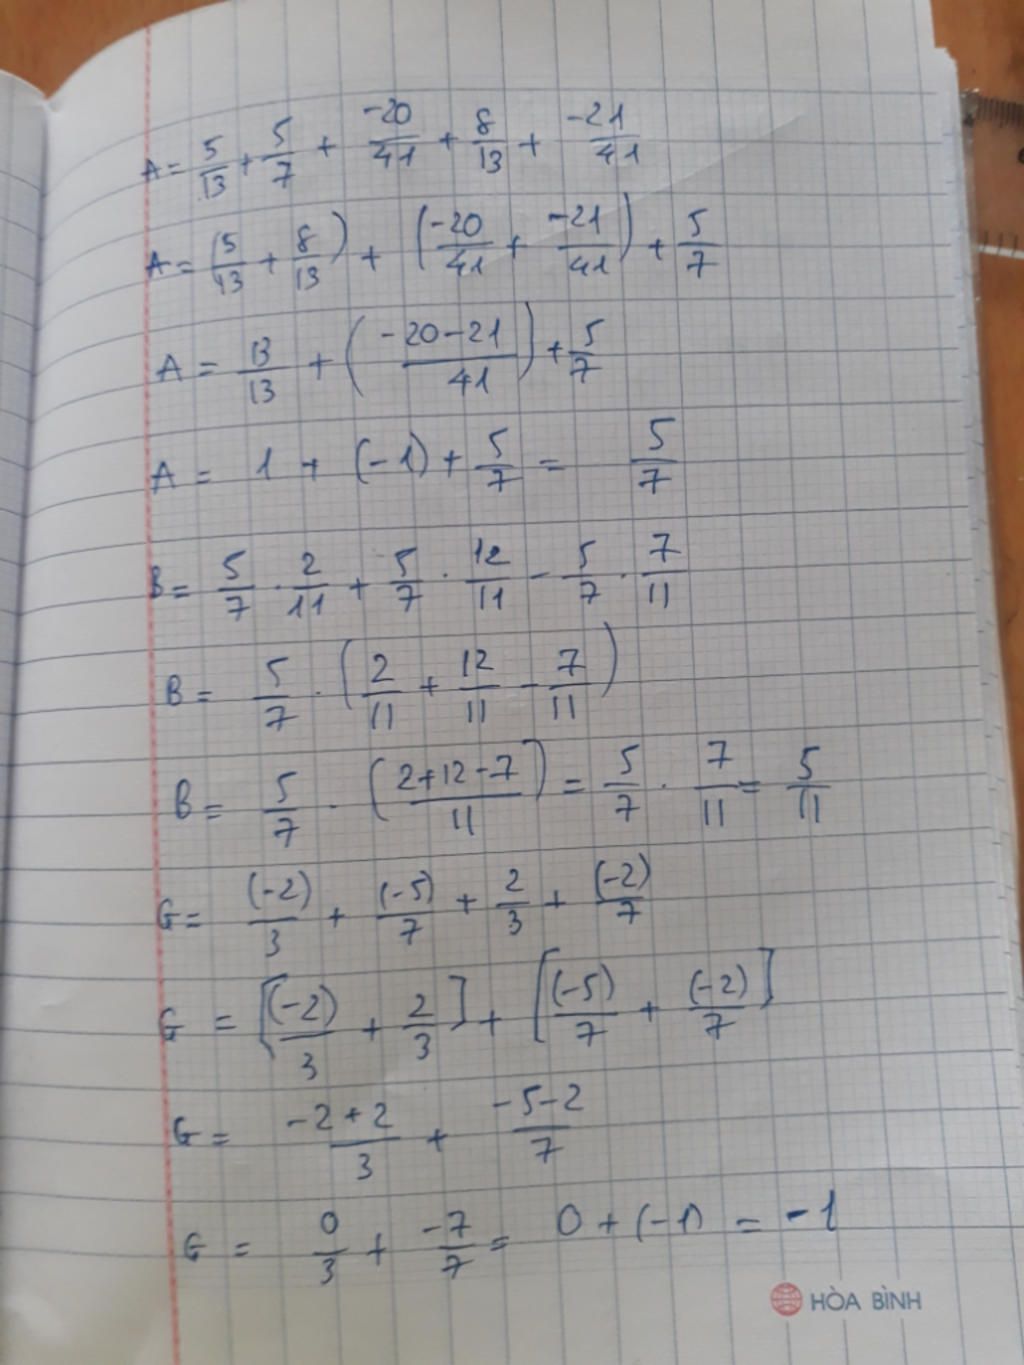 A = 5/13 + 5/7 + -20/41 + 8/13 + -21/41
A = (5/13 + 8/13) + (-20/41 + -21/41) + 5/7
A = 13/13 + (-20-21/41) + 5/7
A = 1 + (-1) + 5/7 = 5/7
B = 5/7 . 2/11 + 5/7 . 12/11 - 5/7 . 7/11
B = 5/7 . (2/11 + 12/11 - 7/11)
B = 5/7 . (2+12-7/11) = 5/7 . 7/11 = 5/11
G = (-2)/3 + (-5)/7 + 2/3 + (-2)/7
G = [(-2)/3 + 2/3] + [(-5)/7 + (-2)/7]
G = -2+2/3 + -5-2/7
G = 0/3 + -7/7 = 0 + (-1) = -1
HÒA BÌNH